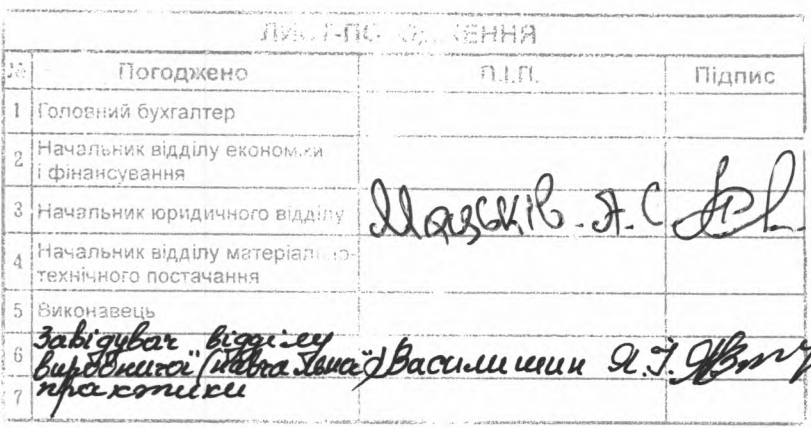 ЛИСТ-ПОГОДЖЕННЯ
№ Погоджено П.І.П. Підпис
1 Головний бухгалтер
2 Начальник відділу економіки
і фінансування
3 Начальник юридичного відділу Мацьків. Я. С
4 Начальник відділу матеріально-
технічного постачання
5 Виконавець
Завідувач відділу
6 виробничої (навчальної) Василишин Я. І.
7 практики